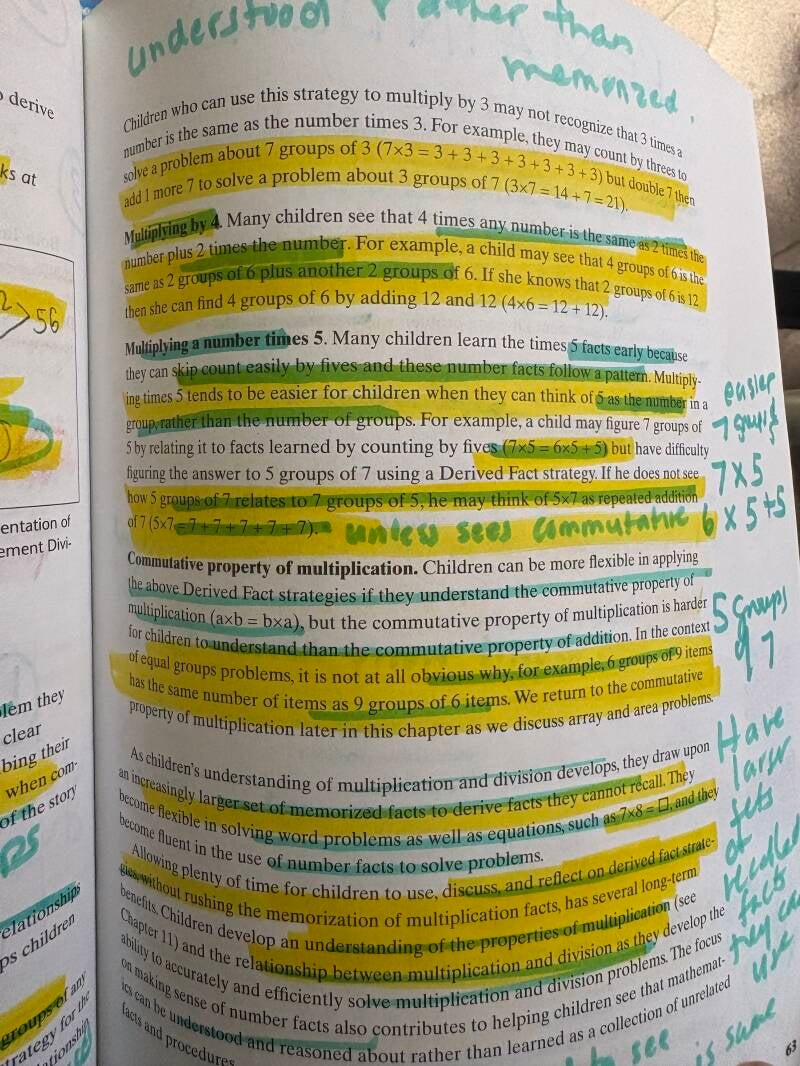 understood rather than
memorized.
derive
ks at
56
entation of
ement Divi-
lem they
clear
bing their
when com-
of the story
elationships
ps children
groups of any
trategy for the
ationship
Children who can use this strategy to multiply by 3 may not recognize that 3 times a
number is the same as the number times 3. For example, they may count by threes to
solve a problem about 7 groups of 3 (7×3 = 3 + 3 + 3 + 3 + 3 + 3 + 3) but double 7 then
add 1 more 7 to solve a problem about 3 groups of 7 (3×7 = 14 + 7 = 21).
Multiplying by 4. Many children see that 4 times any number is the same as 2 times the
number plus 2 times the number. For example, a child may see that 4 groups of 6 is the
same as 2 groups of 6 plus another 2 groups of 6. If she knows that 2 groups of 6 is 12
then she can find 4 groups of 6 by adding 12 and 12 (4×6 = 12 + 12).
Multiplying a number times 5. Many children learn the times 5 facts early because
they can skip count easily by fives and these number facts follow a pattern. Multiply-
ing times 5 tends to be easier for children when they can think of 5 as the number in a
group, rather than the number of groups. For example, a child may figure 7 groups of
5 by relating it to facts learned by counting by fives (7×5 = 6×5 + 5) but have difficulty
figuring the answer to 5 groups of 7 using a Derived Fact strategy. If he does not see
how 5 groups of 7 relates to 7 groups of 5, he may think of 5×7 as repeated addition
of 7 (5×7 = 7 + 7 + 7 + 7 + 7). unless sees commutative
easier
7 groups
7 x 5
6 x 5 + 5
5 groups
of 7
Commutative property of multiplication. Children can be more flexible in applying
the above Derived Fact strategies if they understand the commutative property of
multiplication (a×b = b×a), but the commutative property of multiplication is harder
for children to understand than the commutative property of addition. In the context
of equal groups problems, it is not at all obvious why, for example, 6 groups of 9 items
has the same number of items as 9 groups of 6 items. We return to the commutative
property of multiplication later in this chapter as we discuss array and area problems.
As children's understanding of multiplication and division develops, they draw upon
an increasingly larger set of memorized facts to derive facts they cannot recall. They
become flexible in solving word problems as well as equations, such as 7×8 = □, and they
become fluent in the use of number facts to solve problems.
Allowing plenty of time for children to use, discuss, and reflect on derived fact strate-
gies, without rushing the memorization of multiplication facts, has several long-term
benefits. Children develop an understanding of the properties of multiplication (see
Chapter 11) and the relationship between multiplication and division as they develop the
ability to accurately and efficiently solve multiplication and division problems. The focus
on making sense of number facts also contributes to helping children see that mathemat-
ics can be understood and reasoned about rather than learned as a collection of unrelated
facts and procedures.
Have
larger
sets
of
recalled
facts
they can
use
to see is same
63